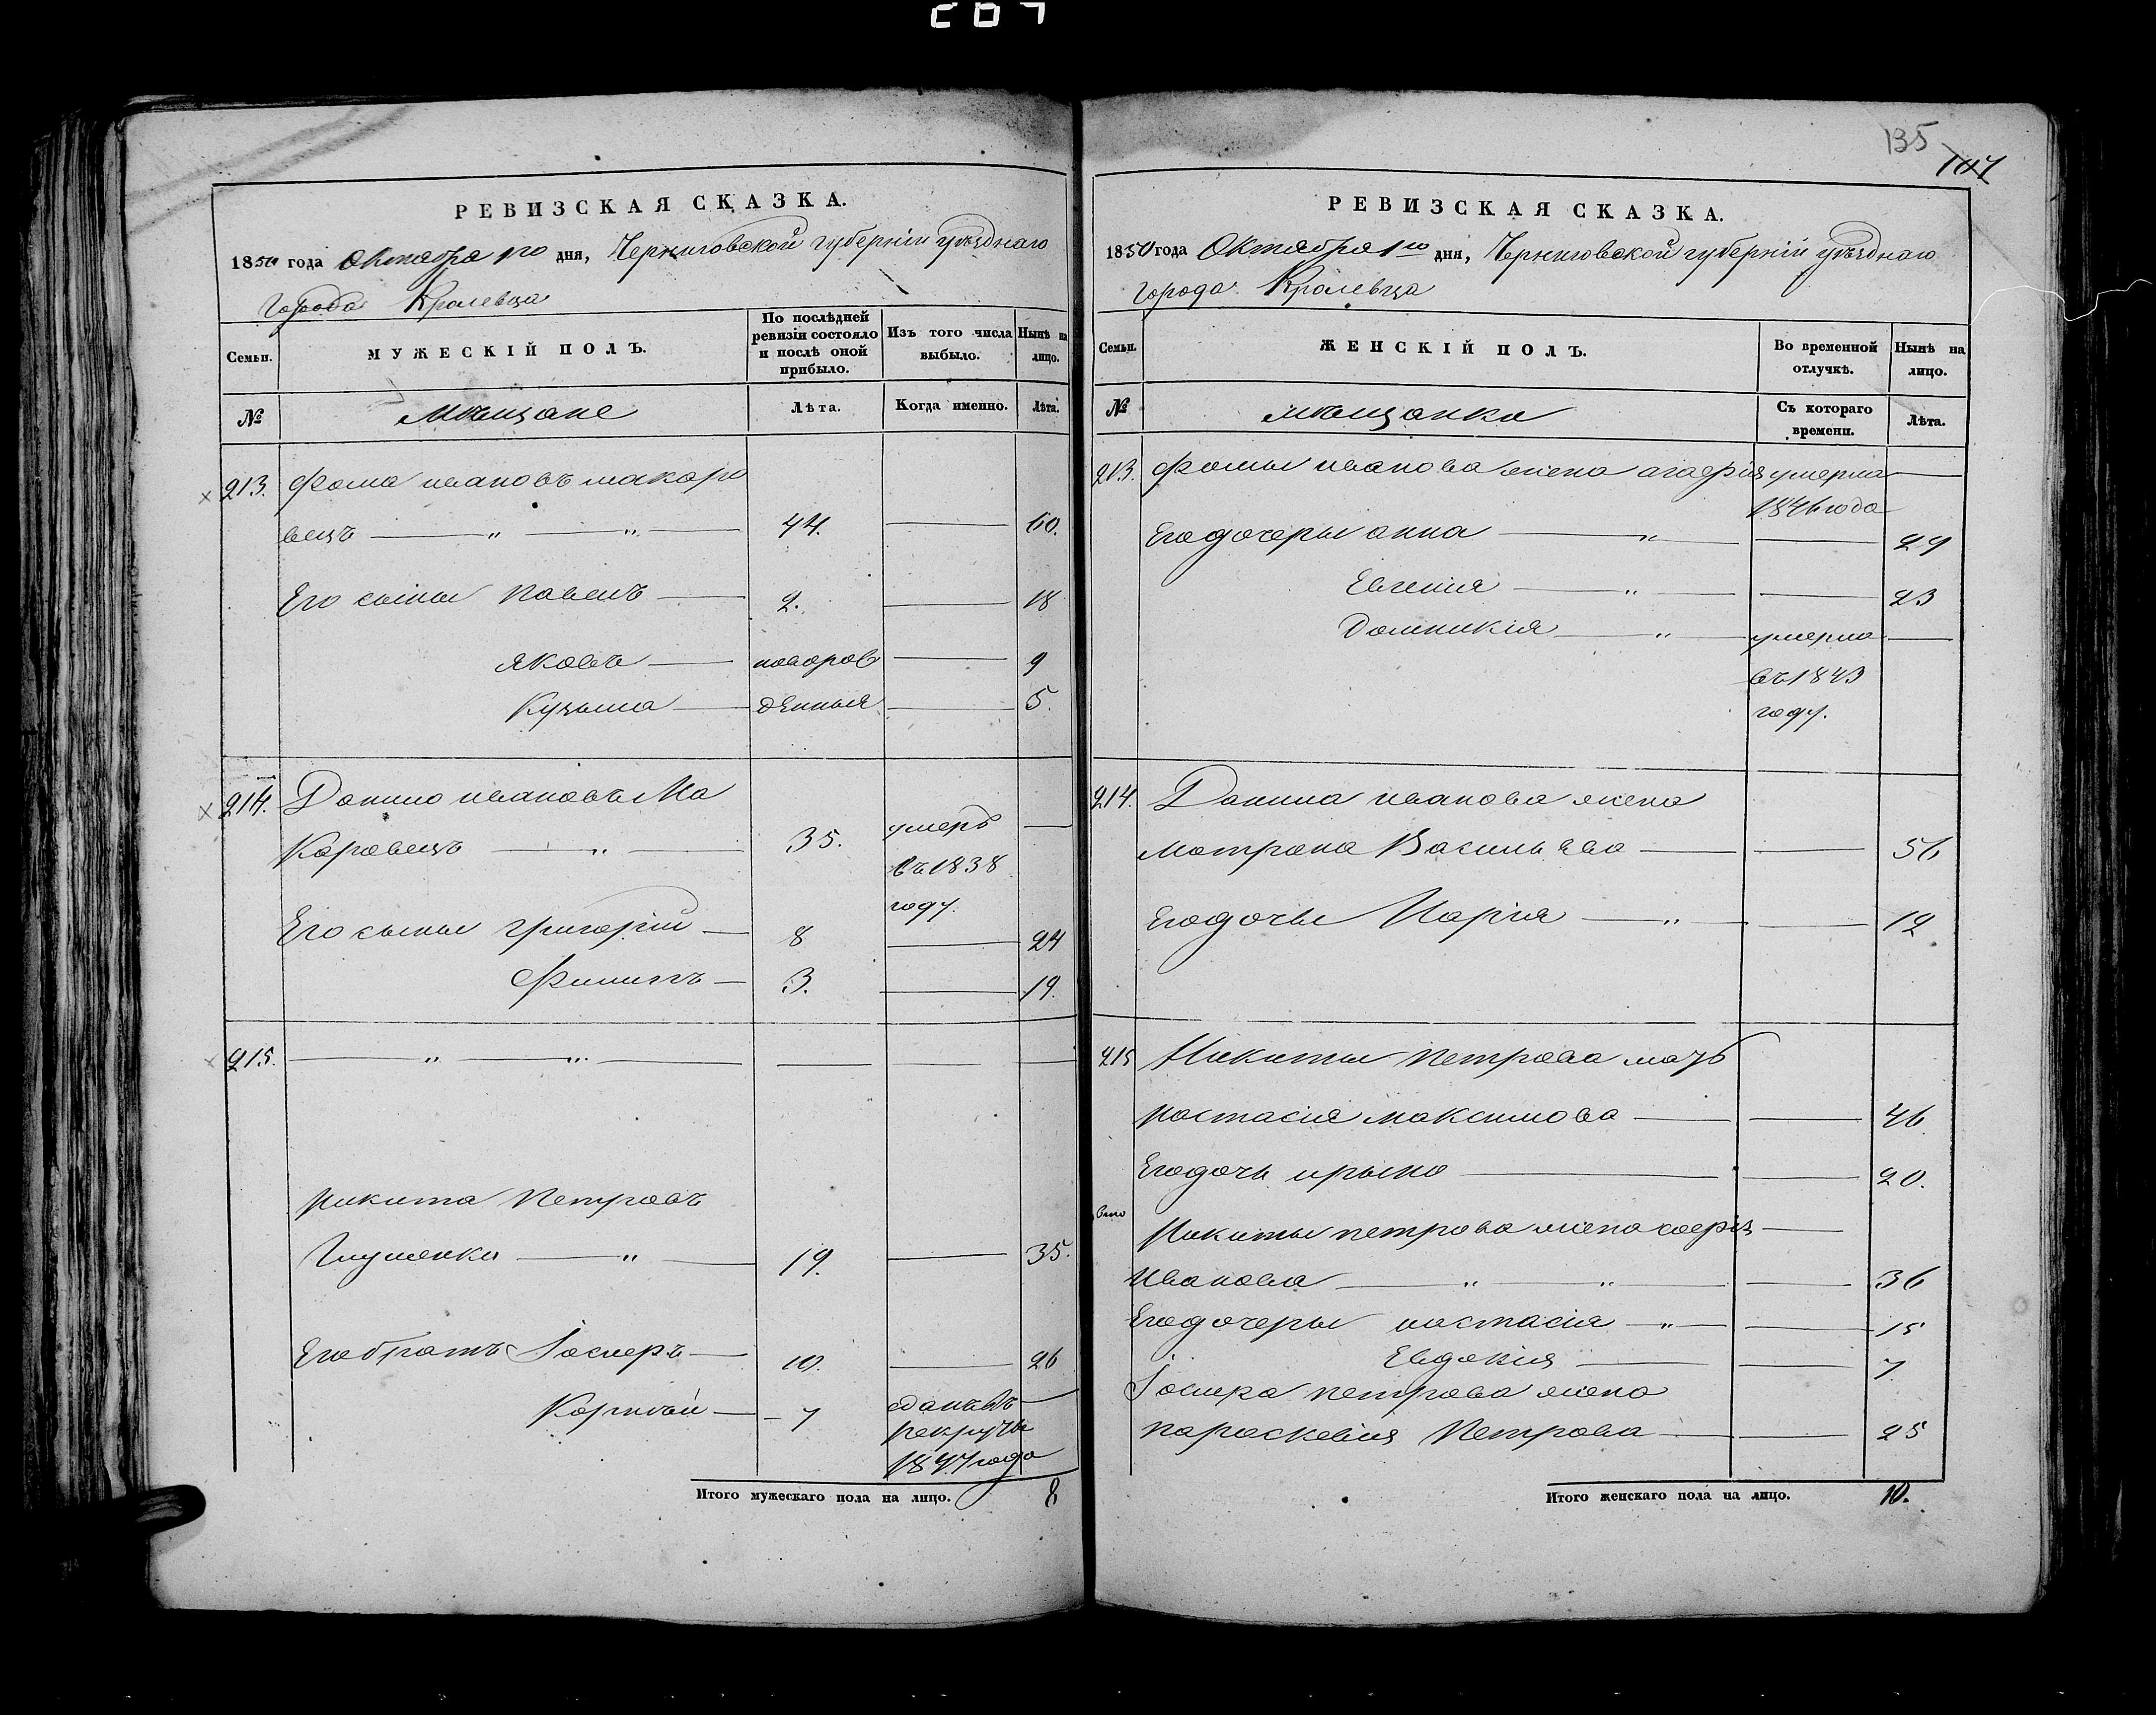 207
РЕВИЗСКАЯ СКАЗКА.
1850 года Октября 1го дня, Черниговской губерніи уѣзднаго
города Кролевца
Семьи.
МУЖЕСКІЙ ПОЛЪ.
По послѣдней ревизіи состояло и послѣ оной прибыло.
Изъ того числа выбыло.
Нынѣ на лицо.
№
Мѣщане
Лѣта.
Когда именно.
Лѣта.
213. Фома ивановъ макаро
вецъ — „ — „ — 44. — 60.
Его сыны павелъ — 2. — 18
яковъ — новорож — 9
Кузьма — денныя — 5.
214. Данило ивановъ Ма
каровецъ — „ — 35. умеръ —
въ 1838
году.
Его сыны григорій — 8 — 24
Филипъ — 3. — 19.
215. — „ — „ — — — —
никита Петровъ
— „ — 19. — 35.
Его братъ Іосифъ — 10. — 26
— 7 сданъ въ —
рекруты
1847 года
Итого мужескаго пола на лицо. 8
135
107
РЕВИЗСКАЯ СКАЗКА.
1850 года Октября 1го дня, Черниговской губерніи уѣзднаго
города Кролевца
Семьи.
ЖЕНСКІЙ ПОЛЪ.
Во временной отлучкѣ.
Нынѣ на лицо.
№
мѣщанки
Съ котораго времени.
Лѣта.
213. Фомы иванова жена агафія умерла —
1846 года
Его дочеры анна — „ — — 29
Евгенія — „ — — 23
Домникія — „ — умерла —
въ 1843
году.
214. Данила иванова жена
матрона Васильева — — 56
Его дочь Марія — „ — — 12
215 Никиты петрова мать
настасія максимова — — 46
Его дочь ирына — — 20.
Никиты петрова жена софія —
Иванова — „ — „ — — 36
Его дочеры настасія — „ — — 15
Евдокія — — 7
Іосифа петрова жена
параскевія Петрова — — 25
Итого женскаго пола на лицо. 10.